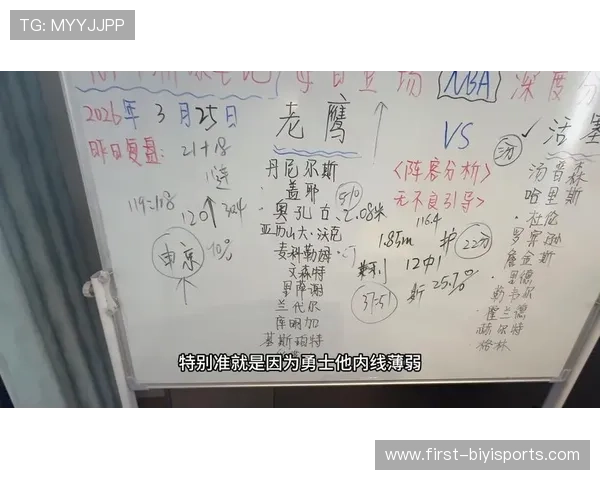 TG: MYYJJPP
每日立场 NBA 深度分
2026年3月25日
老鹰
VS
活塞
昨日复盘:
21+18
丹尼尔斯
<阵容分析>
汤
汤普森
119=118
盖耶
510
无不良引导>
哈里斯
120↑ 324
·奥孔古、2.08米
116.4
·杜伦
亚历山大·沃克
1.85m
护
22分
罗宾逊
东京
10%
麦科勒姆·
12中1
詹金斯
文森特
斯 25.7%
里德
里萨谢
37:51
勒韦尔
兰代尔
·霍兰德
库明加
施尔特
基斯珀特
·格林
特别准就是因为勇士他内线薄弱
www.first-biyisports.com